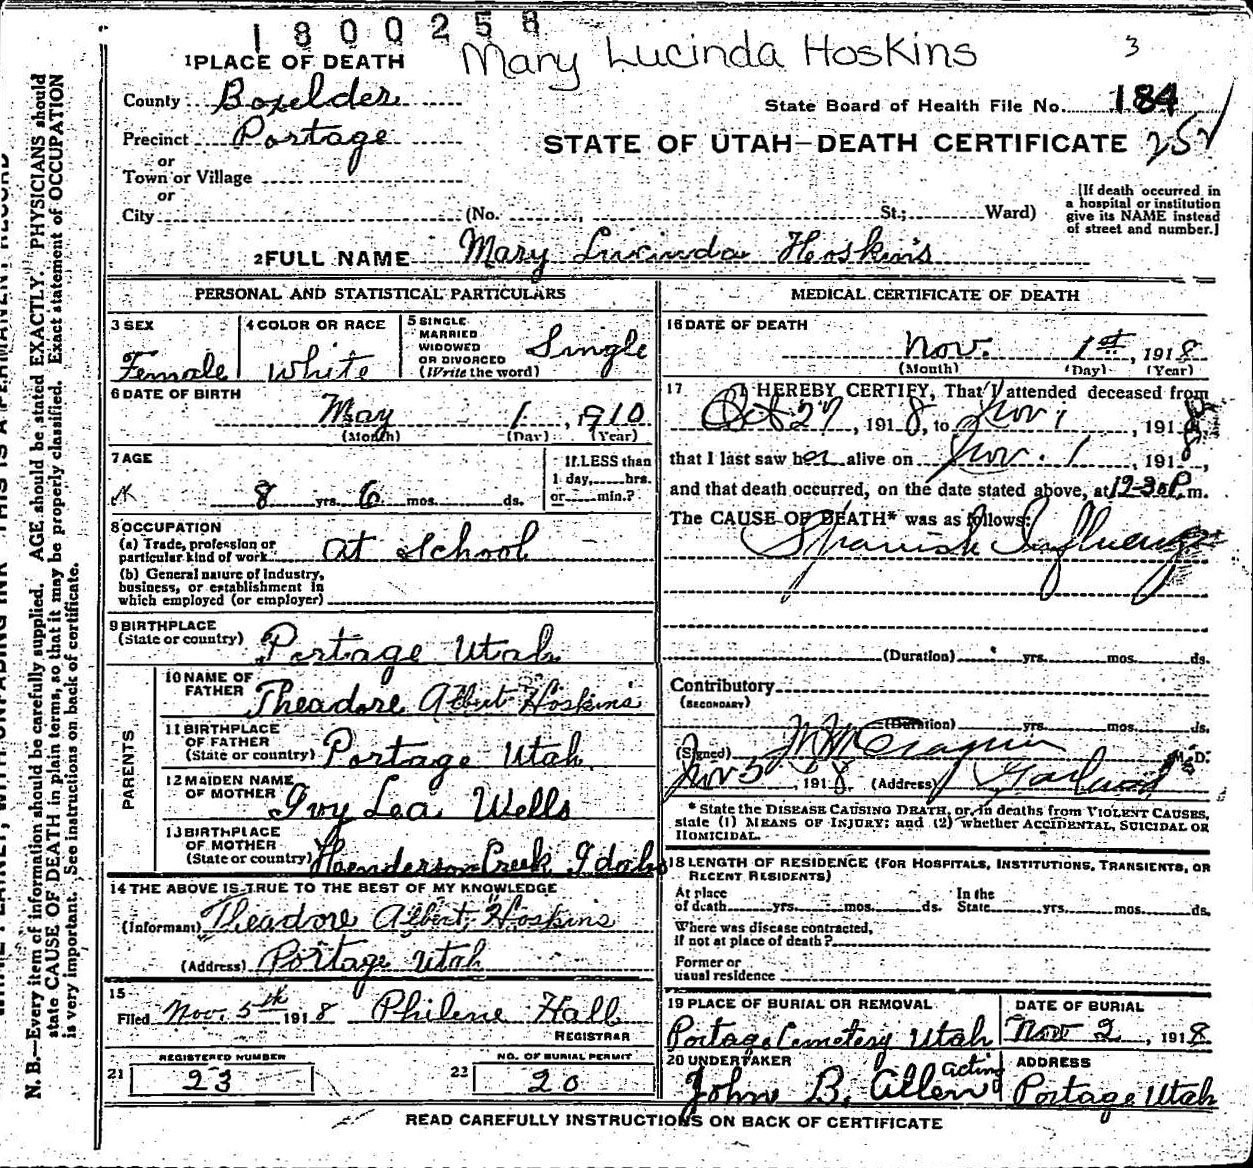 1800258
Mary Lucinda Hoskins
3
1 PLACE OF DEATH
County Boxelder
State Board of Health File No. 184
Precinct Portage
STATE OF UTAH—DEATH CERTIFICATE 252
or
Town or Village
or
City (No. , St.; Ward)
[If death occurred in
a hospital or institution
give its NAME instead
of street and number.]
2 FULL NAME Mary Lucinda Hoskins
PERSONAL AND STATISTICAL PARTICULARS
3 SEX
Female
4 COLOR OR RACE
White
5 SINGLE
MARRIED
WIDOWED
OR DIVORCED
(Write the word)
Single
6 DATE OF BIRTH
May 1, 1910
(Month) (Day) (Year)
7 AGE
8 yrs. 6 mos. ds.
If LESS than
1 day, hrs.
or min.?
8 OCCUPATION
(a) Trade, profession or
particular kind of work
at school
(b) General nature of Industry,
business, or establishment in
which employed (or employer)
9 BIRTHPLACE
(State or country) Portage Utah
PARENTS
10 NAME OF
FATHER Theadore Albert Hoskins
11 BIRTHPLACE
OF FATHER
(State or country) Portage Utah
12 MAIDEN NAME
OF MOTHER Ivy Lea Wells
13 BIRTHPLACE
OF MOTHER
(State or country) Henderson Creek Idaho
14 THE ABOVE IS TRUE TO THE BEST OF MY KNOWLEDGE
(Informant) Theadore Albert Hoskins
(Address) Portage Utah
15
Filed Nov. 5th 1918 Philene Hall
REGISTRAR
REGISTERED NUMBER
21 23
NO. OF BURIAL PERMIT
22 20
MEDICAL CERTIFICATE OF DEATH
16 DATE OF DEATH
Nov. 1st, 1918
(Month) (Day) (Year)
17 I HEREBY CERTIFY, That I attended deceased from
Oct 27, 1918, to Nov 1, 1918
that I last saw her alive on Nov. 1, 1918,
and that death occurred, on the date stated above, at 12-30 P.m.
The CAUSE OF DEATH* was as follows:
Spanish Influenza
(Duration) yrs. mos. ds.
Contributory
(SECONDARY)
(Duration) yrs. mos. ds.
(Signed) M.D.
Nov 5, 1918. (Address) Garland
* State the DISEASE CAUSING DEATH, or, in deaths from VIOLENT CAUSES,
state (1) MEANS OF INJURY; and (2) whether ACCIDENTAL, SUICIDAL OR
HOMICIDAL.
18 LENGTH OF RESIDENCE (FOR HOSPITALS, INSTITUTIONS, TRANSIENTS, OR
RECENT RESIDENTS)
At place
of death yrs. mos. ds.
In the
State yrs. mos. ds.
Where was disease contracted,
if not at place of death?
Former or
usual residence
19 PLACE OF BURIAL OR REMOVAL
Portage Cemetery Utah
DATE OF BURIAL
Nov 2, 1918
20 UNDERTAKER
acting
John B. Allen
ADDRESS
Portage Utah
READ CAREFULLY INSTRUCTIONS ON BACK OF CERTIFICATE
N. B.—Every item of information should be carefully supplied. AGE should be stated EXACTLY. PHYSICIANS should
state CAUSE OF DEATH in plain terms, so that it may be properly classified. Exact statement of OCCUPATION
is very important. See instructions on back of certificate.